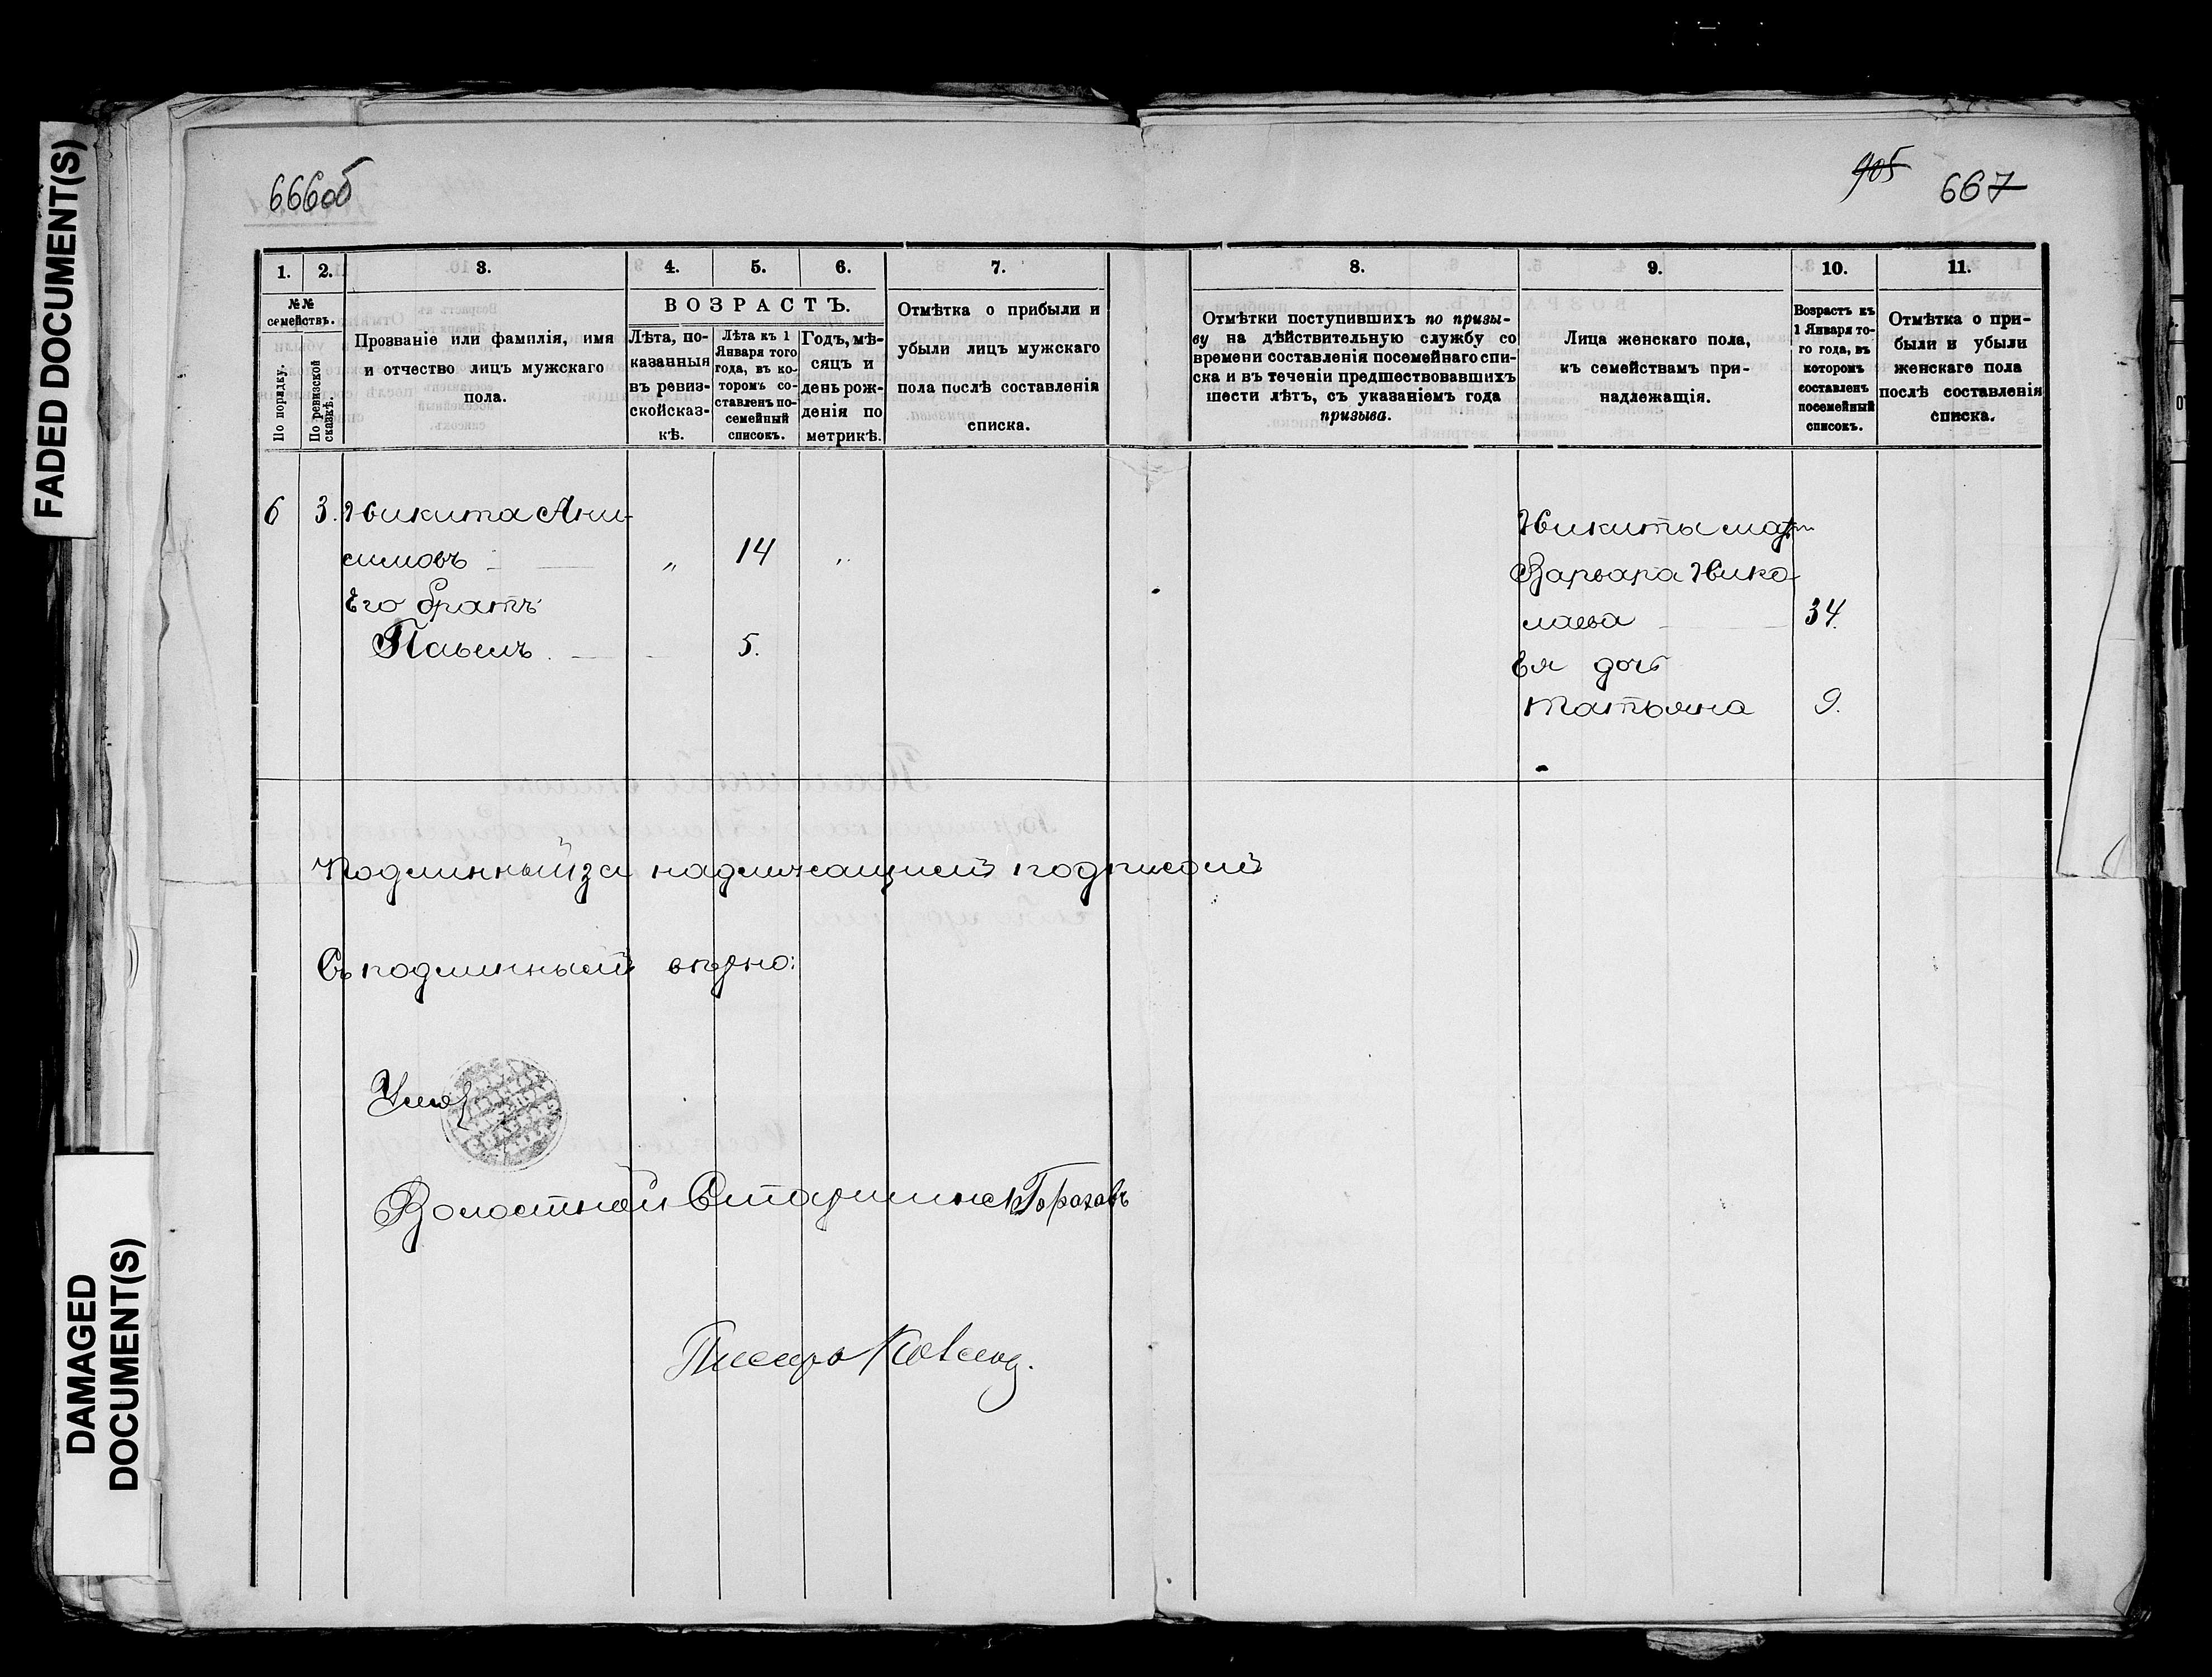 FADED DOCUMENT(S)
DAMAGED
DOCUMENT(S)
666об
905 667
1. 2. 3. 4. 5. 6. 7. 8. 9. 10. 11.
№№
семействъ.
По порядку.
По ревизской
сказкѣ.
Прозваніе или фамилія, имя
и отчество лицъ мужскаго
пола.
ВОЗРАСТЪ.
Лѣта, по-
казанныя
въ ревиз-
скойсказ-
кѣ.
Лѣта къ 1
Января того
года, въ ко-
торомъ со-
ставленъ по-
семейный
списокъ.
Годъ, мѣ-
сяцъ и
день рож-
денія по
метрикѣ.
Отмѣтка о прибыли и
убыли лицъ мужскаго
пола послѣ составленія
списка.
Отмѣтки поступившихъ по призы-
ву на дѣйствительную службу со
времени составленія посемейнаго спи-
ска и въ теченіи предшествовавшихъ
шести лѣтъ, съ указаніемъ года
призыва.
Лица женскаго пола,
къ семействамъ при-
надлежащія.
Возрастъ къ
1 Января то-
го года, въ
которомъ
составленъ
посемейный
списокъ.
Отмѣтка о при-
были и убыли
женскаго пола
послѣ составленія
списка.
6 3. Никита Ани-
симовъ „ 14 „
Его братъ
Павелъ 5.
Никиты мать
Варвара Нико-
лаева 34.
Ея дочь
Татьяна 9.
Подлинный за надлежащей подписью
Съ подлиннымъ вѣрно:
Волостной Старшина
Писарь